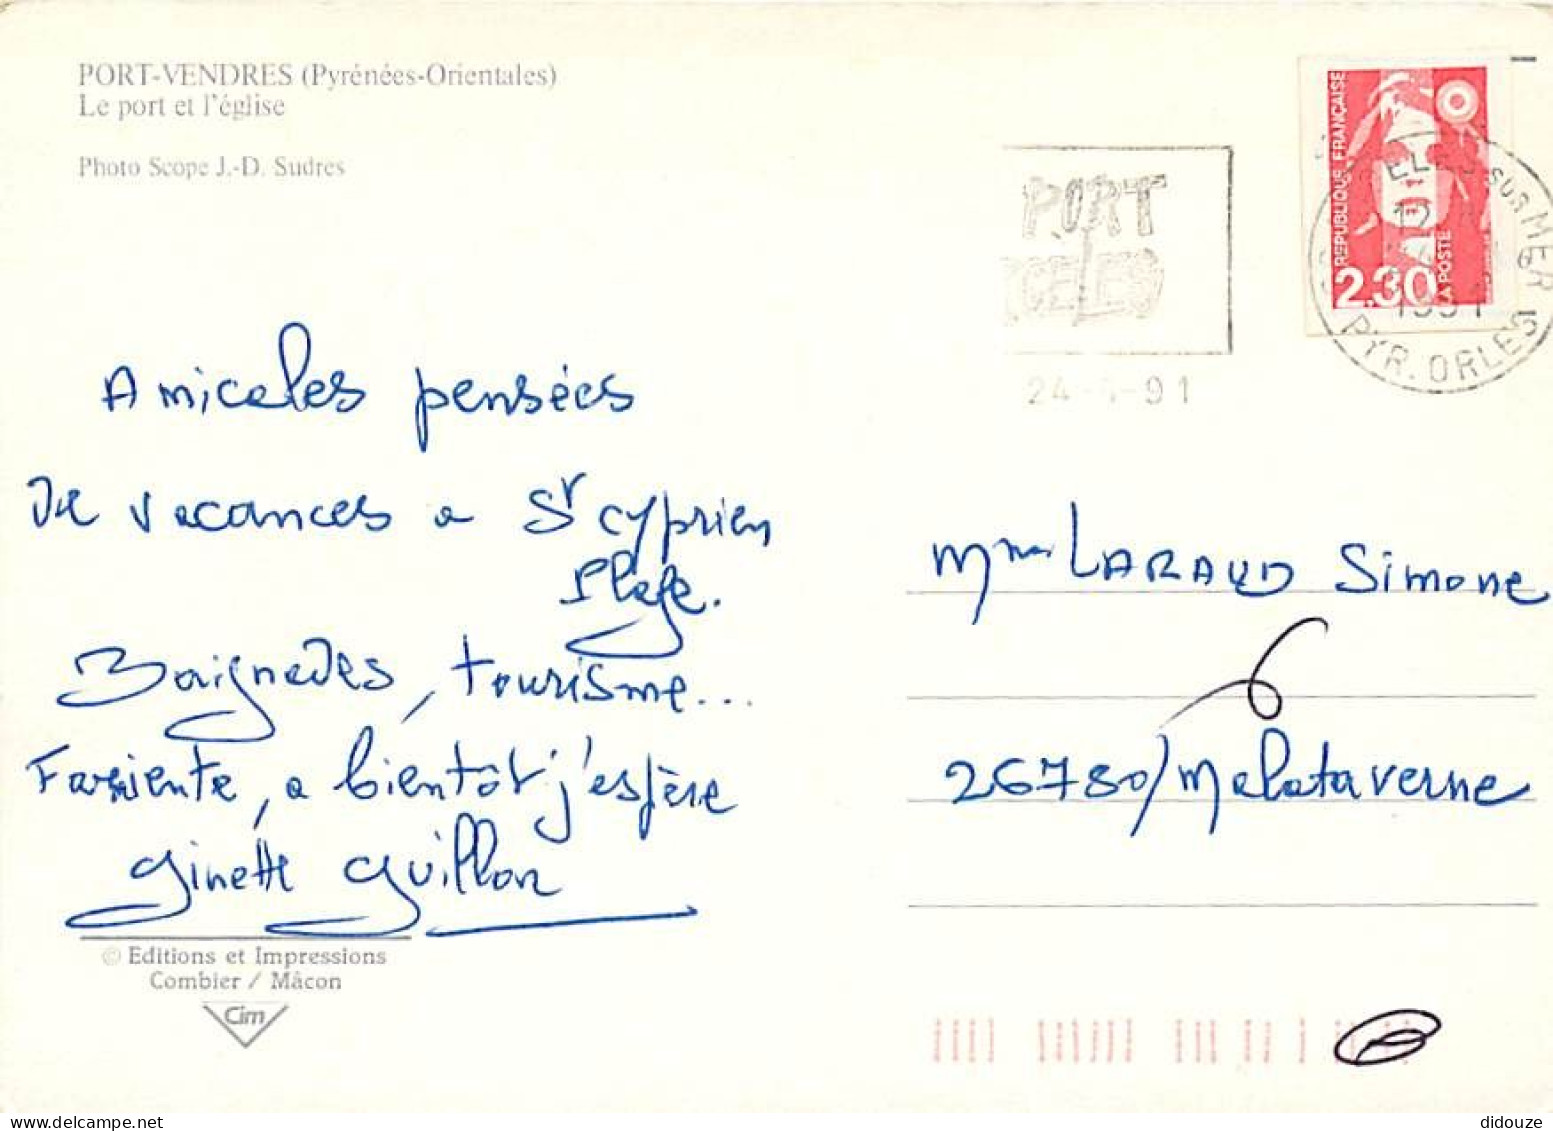 PORT-VENDRES (Pyrénées-Orientales)
Le port et l'église
Photo Scope J.-D. Sudres
RÉPUBLIQUE FRANÇAISE
2,30
LA POSTE
SUR MER
12
1991
PYR. ORLES
PORT
24- -91
Amicales pensées
de vacances a St cyprien
Plage.
Baignades, tourisme...
Farniente, a bientôt j'espère
Ginette Guillon
Mme LARAUD Simone
26780/Malataverne
© Editions et Impressions
Combier / Mâcon
Cim
didouze